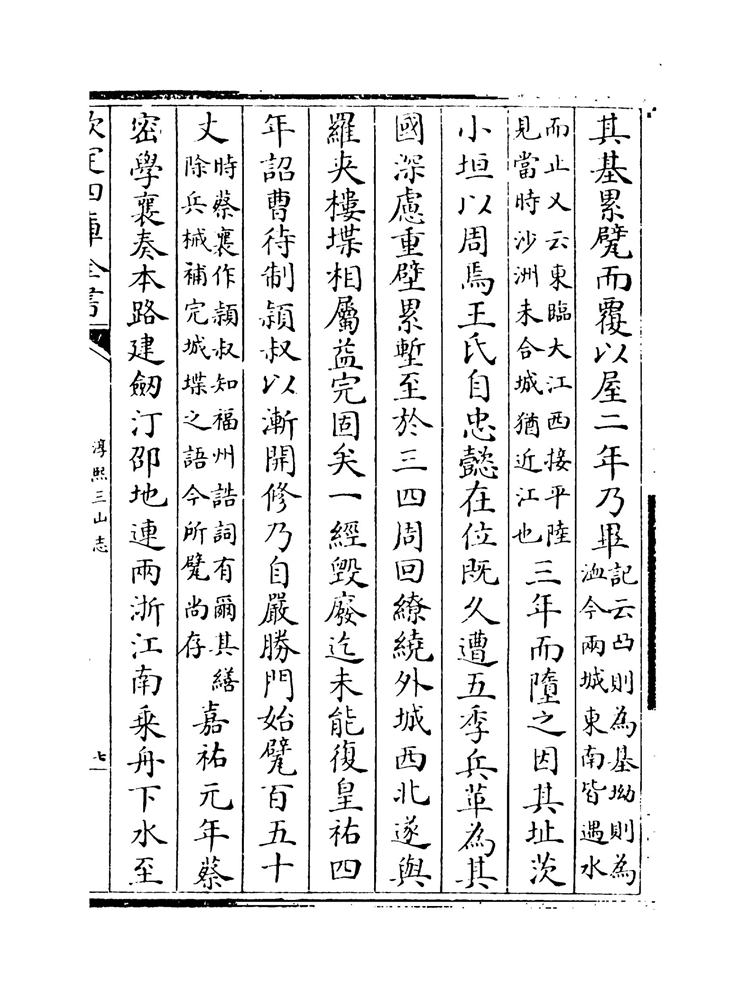 其基累甓而覆以屋二年乃畢記云凸則為基坳則為洫今兩城東南皆遇水
而止又云東臨大江西接平陸見當時沙洲未合城猶近江也三年而隳之因其址茨
小垣以周焉王氏自忠懿在位既久遭五季兵革為其
國深慮重壁累塹至於三四周回繚繞外城西北遂與
羅夾樓堞相屬益完固矣一經毀廢迄未能復皇祐四
年詔曹待制頴叔以漸開修乃自嚴勝門始甓百五十
丈時蔡襄作頴叔知福州誥詞有爾其繕除兵械補完城堞之語今所甓尚存嘉祐元年蔡
密學襄奏本路建劒汀邵地連兩浙江南乘舟下水至
欽定四庫全書
淳熙三山志
七